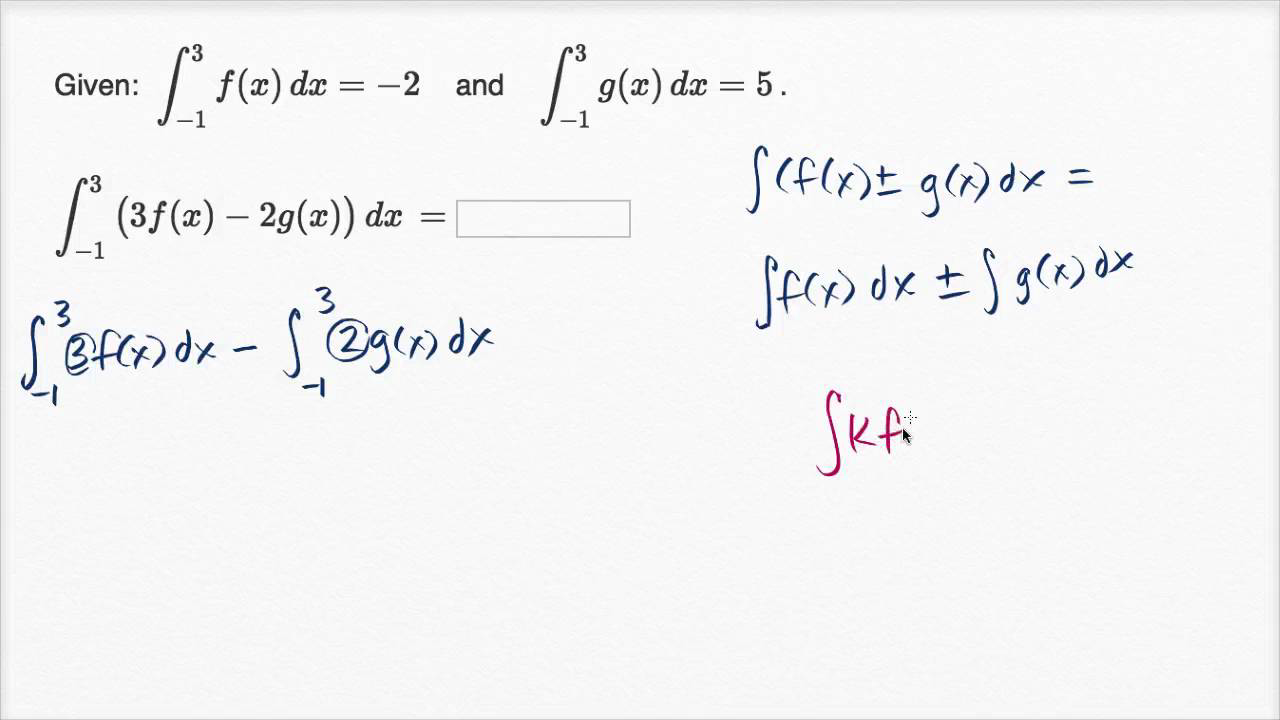 Given: ∫₋₁³ f(x) dx = −2 and ∫₋₁³ g(x) dx = 5 .
∫₋₁³ (3f(x) − 2g(x)) dx =
∫₋₁³ 3f(x) dx − ∫₋₁³ 2g(x) dx
∫(f(x) ± g(x) dx =
∫f(x) dx ± ∫ g(x) dx
∫kf